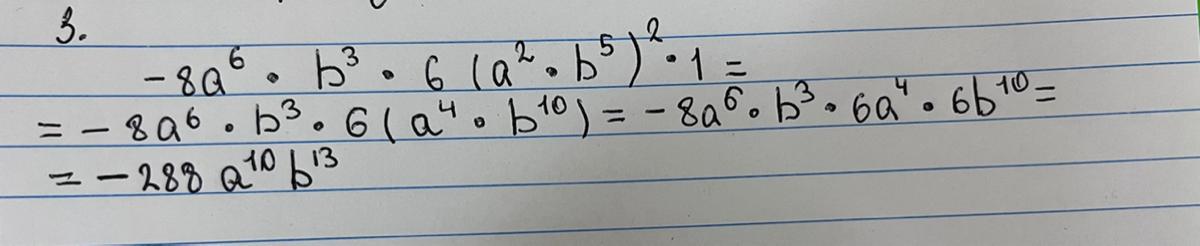 3.
-8a⁶ · b³ · 6 (a² · b⁵)² · 1 =
= -8a⁶ · b³ · 6 (a⁴ · b¹⁰) = -8a⁶ · b³ · 6a⁴ · 6b¹⁰ =
= -288 a¹⁰ b¹³